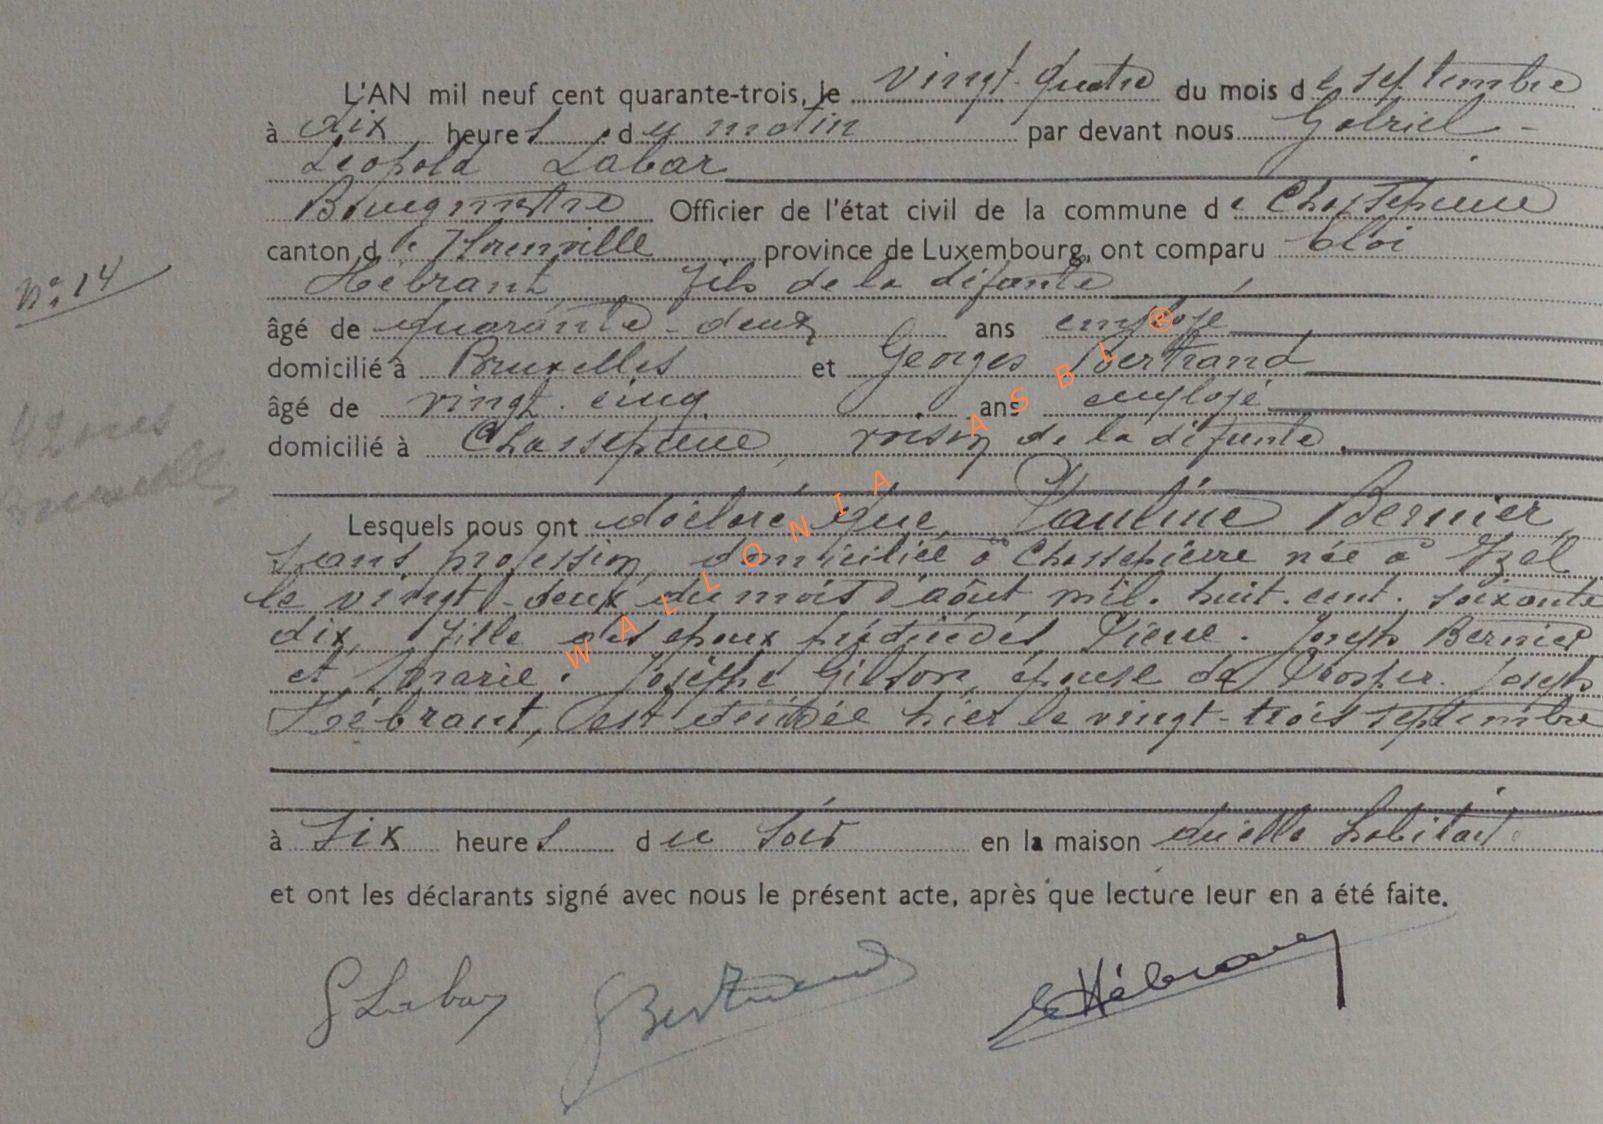 L'AN mil neuf cent quarante-trois, le vingt-quatre du mois de septembre
à dix heures du matin par devant nous Gabriel-
Léopold Labar
Bourgmestre Officier de l'état civil de la commune de Chassepierre
canton de Florenville province de Luxembourg, ont comparu Eloi
Nº 14
Hébrant fils de la défunte
âgé de quarante-deux ans employé
domicilié à Bruxelles et Georges Bertrand
âgé de vingt-cinq ans employé
42 ans
domicilié à Chassepierre, voisin de la défunte.
Bruxelles
Lesquels nous ont déclaré que Pauline Bernier
sans profession, domiciliée à Chassepierre née à Izel
le vingt-deux du mois d'août mil. huit. cent. soixante
dix, fille des époux prédécédés Pierre. Joseph Bernier
et Marie. Josèphe Gilson, épouse de Prosper. Joseph
Hébrant, est décédée hier le vingt-trois septembre
à six heures du soir en la maison qu'elle habitait.
et ont les déclarants signé avec nous le présent acte, après que lecture leur en a été faite.
G Labar G Bertrand E Hébrant
WALLONIA ASBL ®